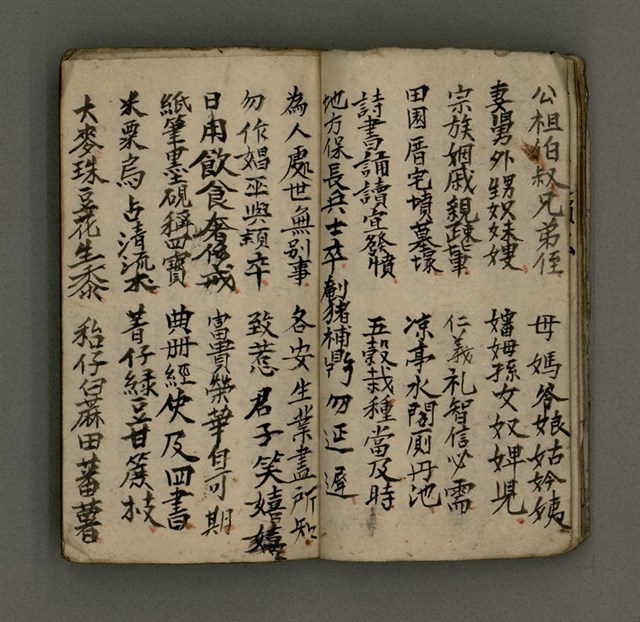 公祖伯叔兄弟侄 母媽爷娘姑妗姨
妻舅外甥奴妹嫂 嬸姆孫女奴婢児
宗族姻戚親疎輩 仁義礼智信必需
田園厝宅墳墓塚 凉亭水閣厠丹池
詩書誦讀宜發憤 五穀栽種當及時
地方保長兵士卒 刣猪補鼎勿延遲
為人處世無别事 各安生業盡所知
勿作娼巫與 卒 致惹君子笑嬉嬉
日用飲食奢侈戒 富貴榮華自可期
紙筆墨硯稱四寶 典册經史及四書
米粟烏占清流水 菁仔緑豆甘蔗枝
大麥珠豆花生黍 秮仔白蔴田蕃薯